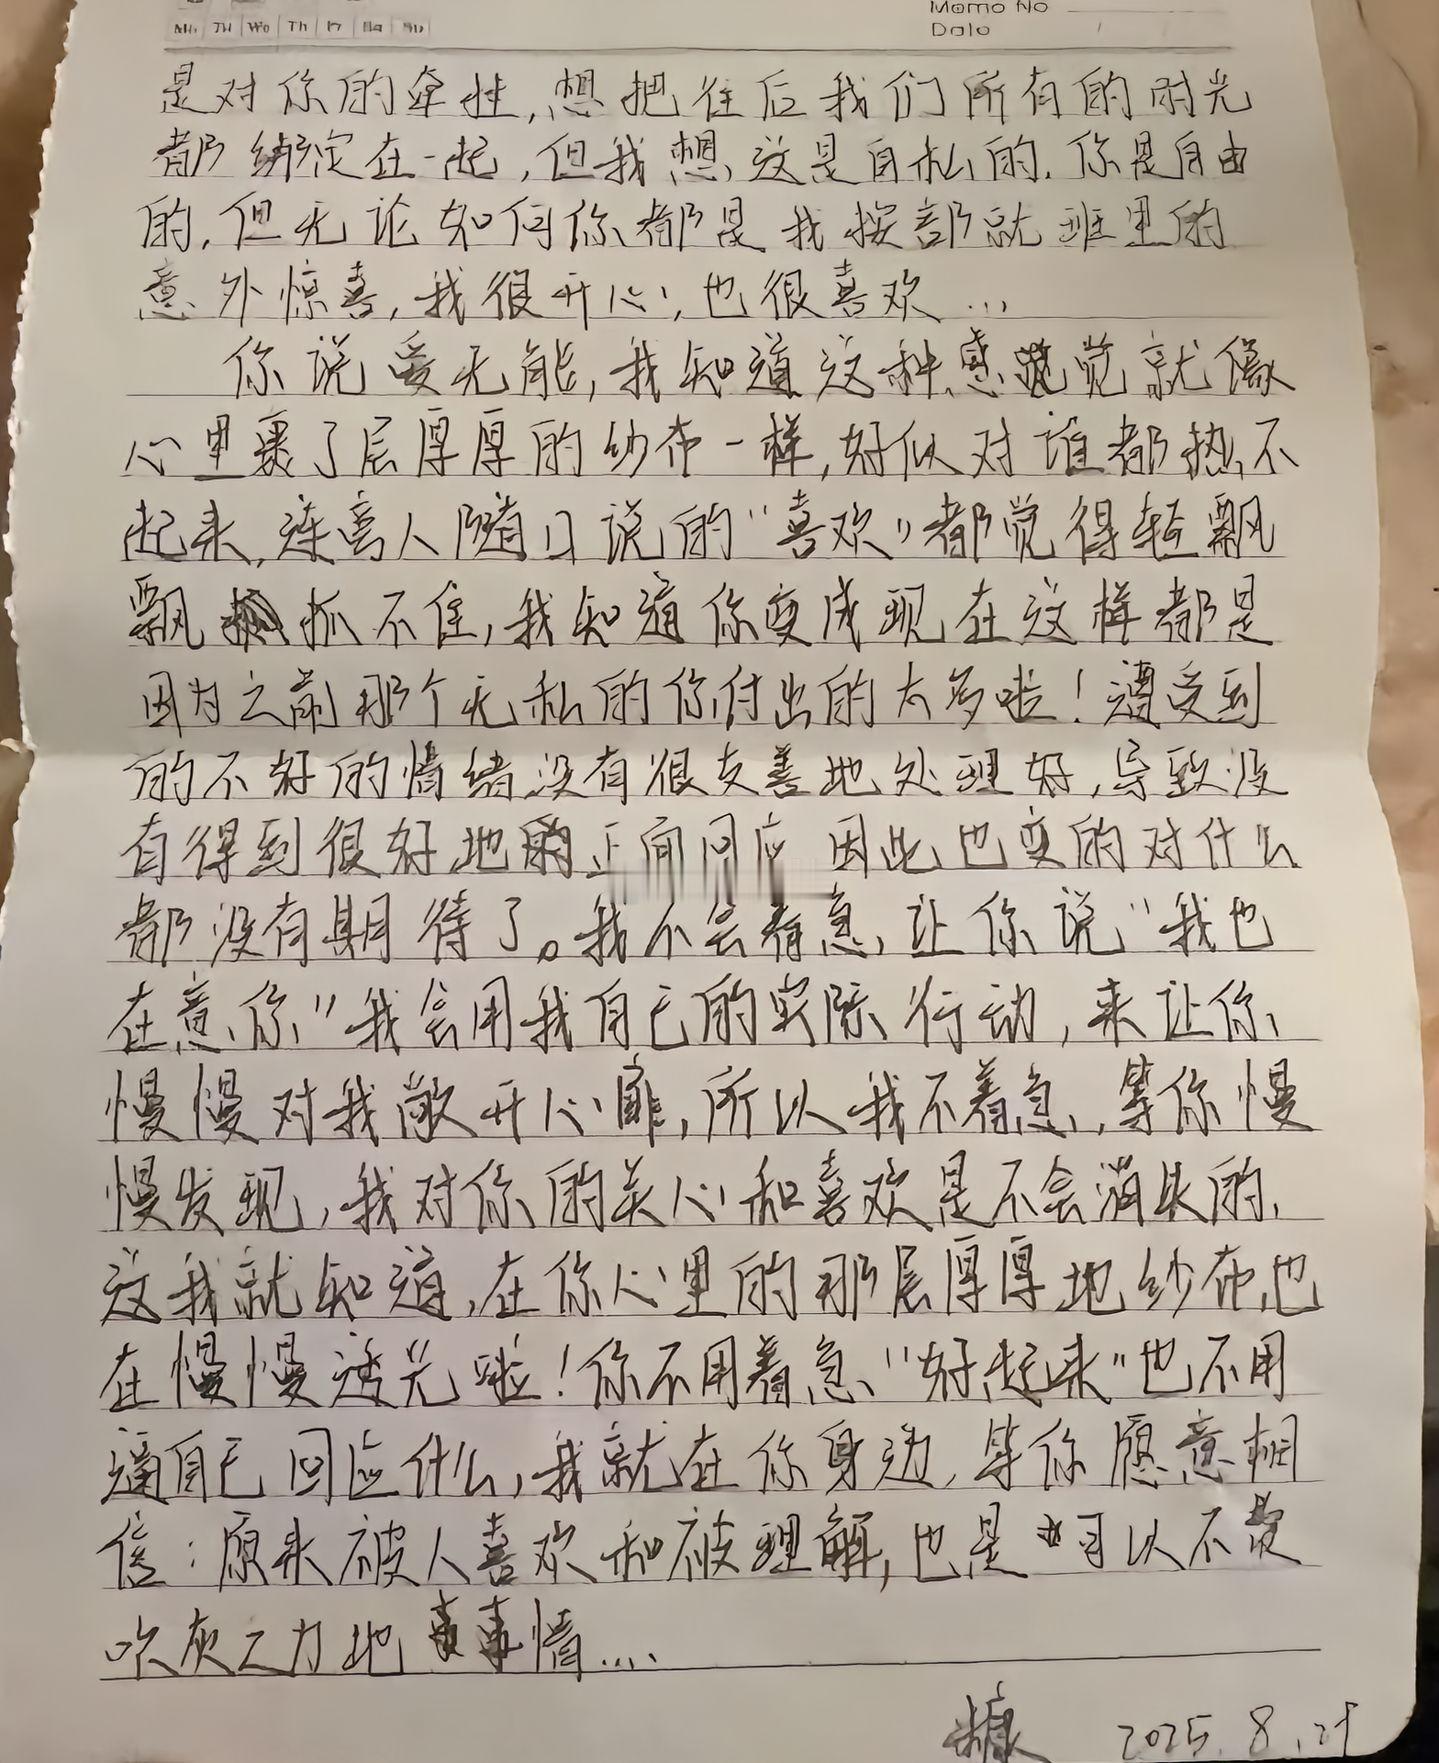 Momo No
Mo Tu We Th Fr Sa Su
Date
是对你的牵挂,想把往后我们所有的时光
都绑定在一起,但我想,这是自私的.你是自由
的,但无论如何你都是我按部就班里的
意外惊喜,我很开心,也很喜欢...
你说爱无能,我知道这种感觉就像
心里裹了层厚厚的纱布一样,好似对谁都热不
起来,连离人随口说的“喜欢”都觉得轻飘
飘抓不住,我知道你变成现在这样都是
因为之前那个无私的你付出的太多啦!遭受到
的不好的情绪没有很友善地处理好,导致没
有得到很好地正面回应 因此也变的对什么
都没有期待了。我不会着急,让你说“我也
在意你”我会用我自己的实际行动,来让你
慢慢对我敞开心扉,所以我不着急,等你慢
慢发现,我对你的关心和喜欢是不会消失的,
这我就知道,在你心里的那层厚厚地纱布也
在慢慢透光啦!你不用着急“好起来”也不用
逼自己回应什么,我就在你身边,等你愿意相
信:原来被人喜欢和被理解,也是可以不费
吹灰之力地事情....
2025.8.29